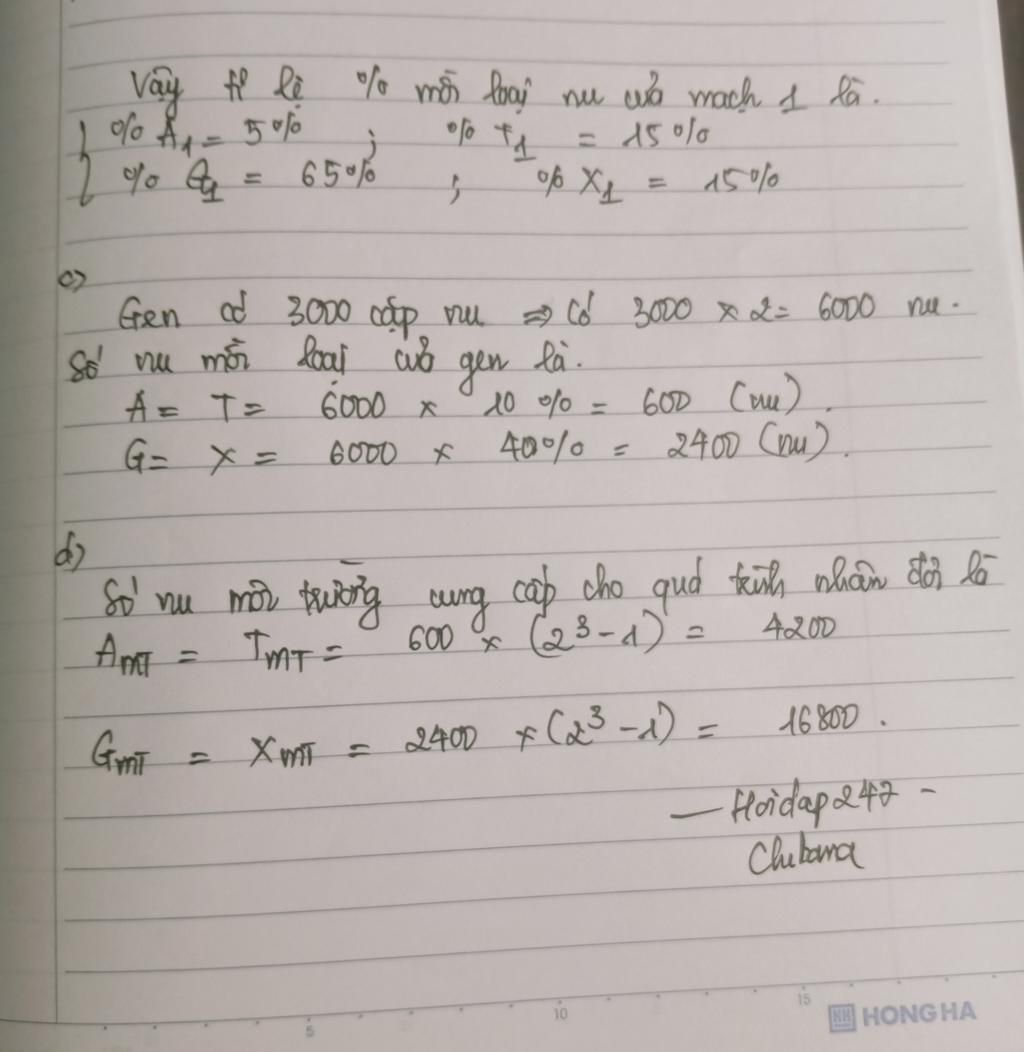 Vậy tỉ lệ % mỗi loại nu của mạch 1 là.
% A1 = 5% ; % T1 = 15%
% G1 = 65% ; % X1 = 15%
c)
Gen có 3000 cặp nu => Có 3000 x 2 = 6000 nu.
Số nu mỗi loại của gen là.
A = T = 6000 x 10 % = 600 (nu).
G = X = 6000 x 40% = 2400 (nu).
d)
Số nu môi trường cung cấp cho quá trình nhân đôi là
AMT = TMT = 600 x (2³ - 1) = 4200
GMT = XMT = 2400 x (2³ - 1) = 16800.
— Hoidap247 -
5
10
15
HH HONG HA